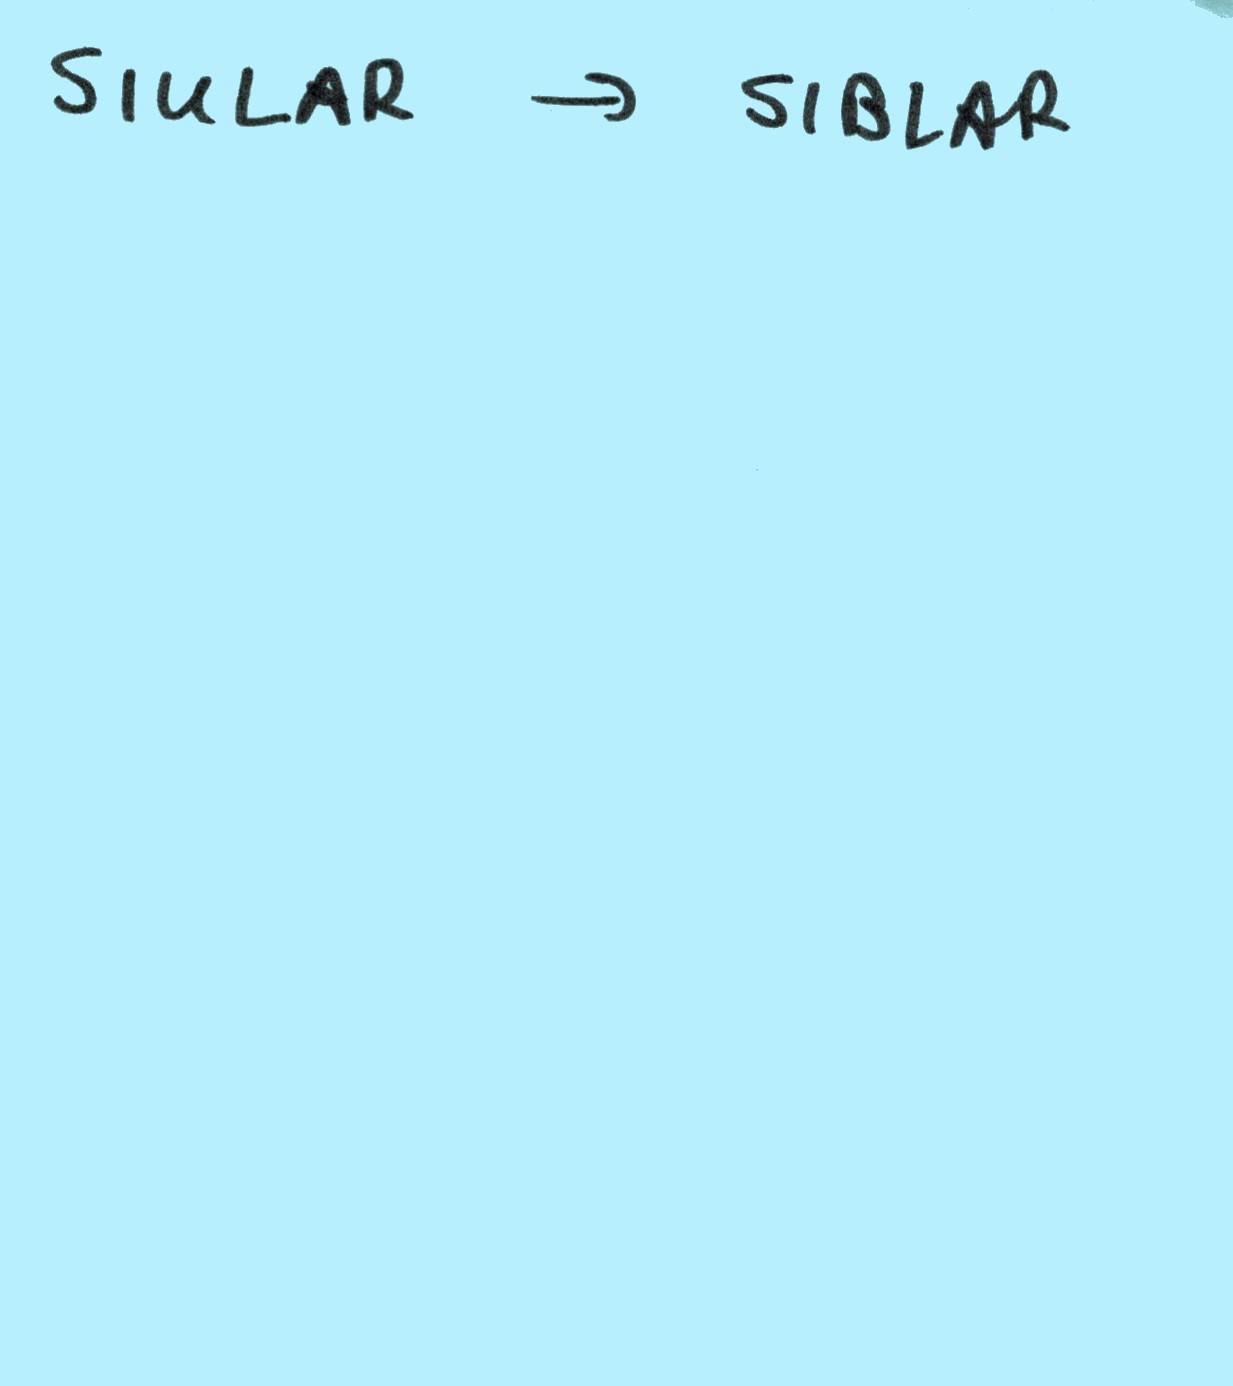 SIULAR → SIBLAR